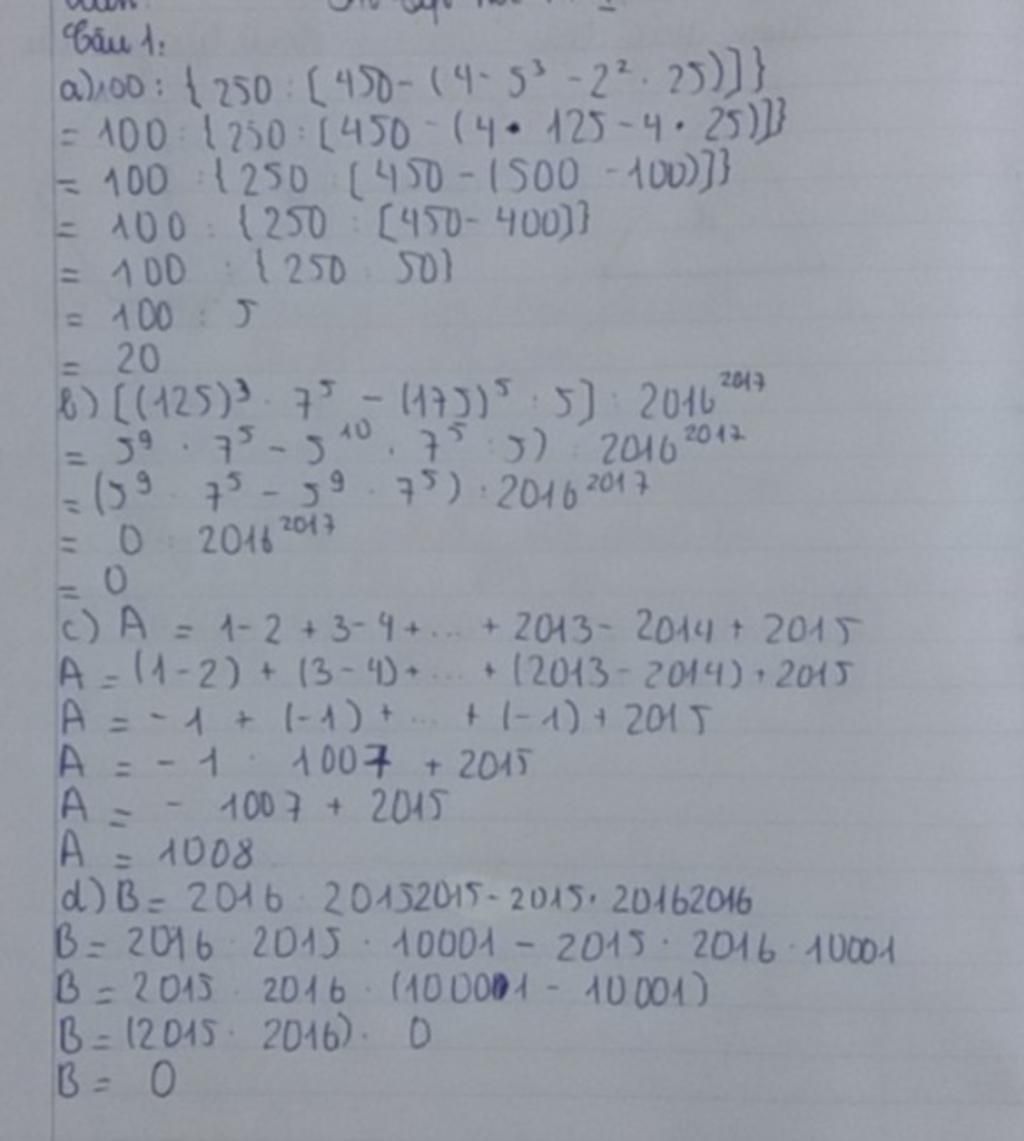 Câu 1:
a) 100 : { 250 : [ 450 - ( 4 · 5³ - 2² · 25 ) ] }
= 100 : { 250 : [ 450 - ( 4 · 125 - 4 · 25 ) ] }
= 100 : { 250 : [ 450 - ( 500 - 100 ) ] }
= 100 : { 250 : [ 450 - 400 ] }
= 100 : { 250 : 50 }
= 100 : 5
= 20
b) [ (125)³ · 7⁵ - (175)⁵ : 5 ] : 2016²⁰¹⁷
= 5⁹ · 7⁵ - 5¹⁰ · 7⁵ : 5 ) : 2016²⁰¹⁷
= ( 5⁹ · 7⁵ - 5⁹ · 7⁵ ) : 2016²⁰¹⁷
= 0 : 2016²⁰¹⁷
= 0
c) A = 1 - 2 + 3 - 4 + ... + 2013 - 2014 + 2015
A = (1 - 2) + (3 - 4) + ... + (2013 - 2014) + 2015
A = - 1 + (-1) + ... + (-1) + 2015
A = - 1 · 1007 + 2015
A = - 1007 + 2015
A = 1008
d) B = 2016 · 20152015 - 2015 · 20162016
B = 2016 · 2015 · 10001 - 2015 · 2016 · 10001
B = 2015 · 2016 · (10001 - 10001)
B = (2015 · 2016) · 0
B = 0